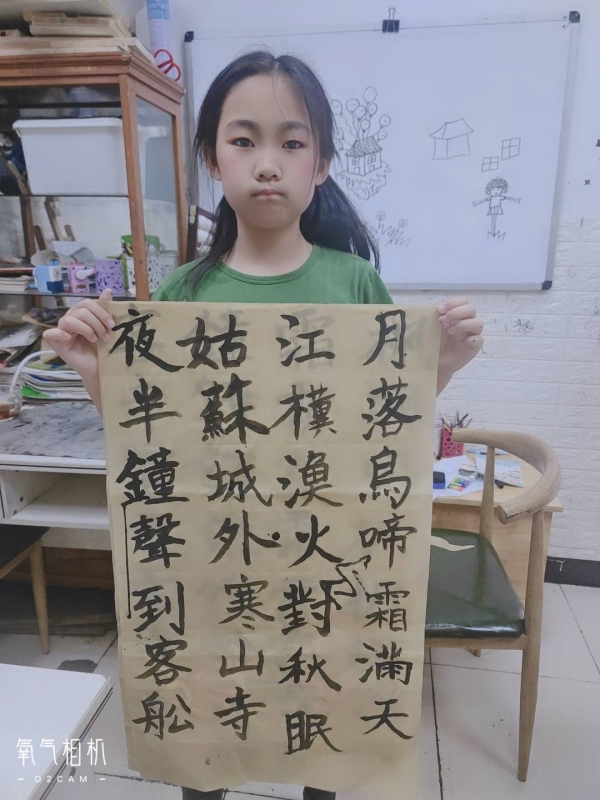 月落鳥啼霜滿天
江漁火對秋眠
姑蘇城外寒山寺
夜半鐘聲到客舩
氧气相机
– O2CAM –